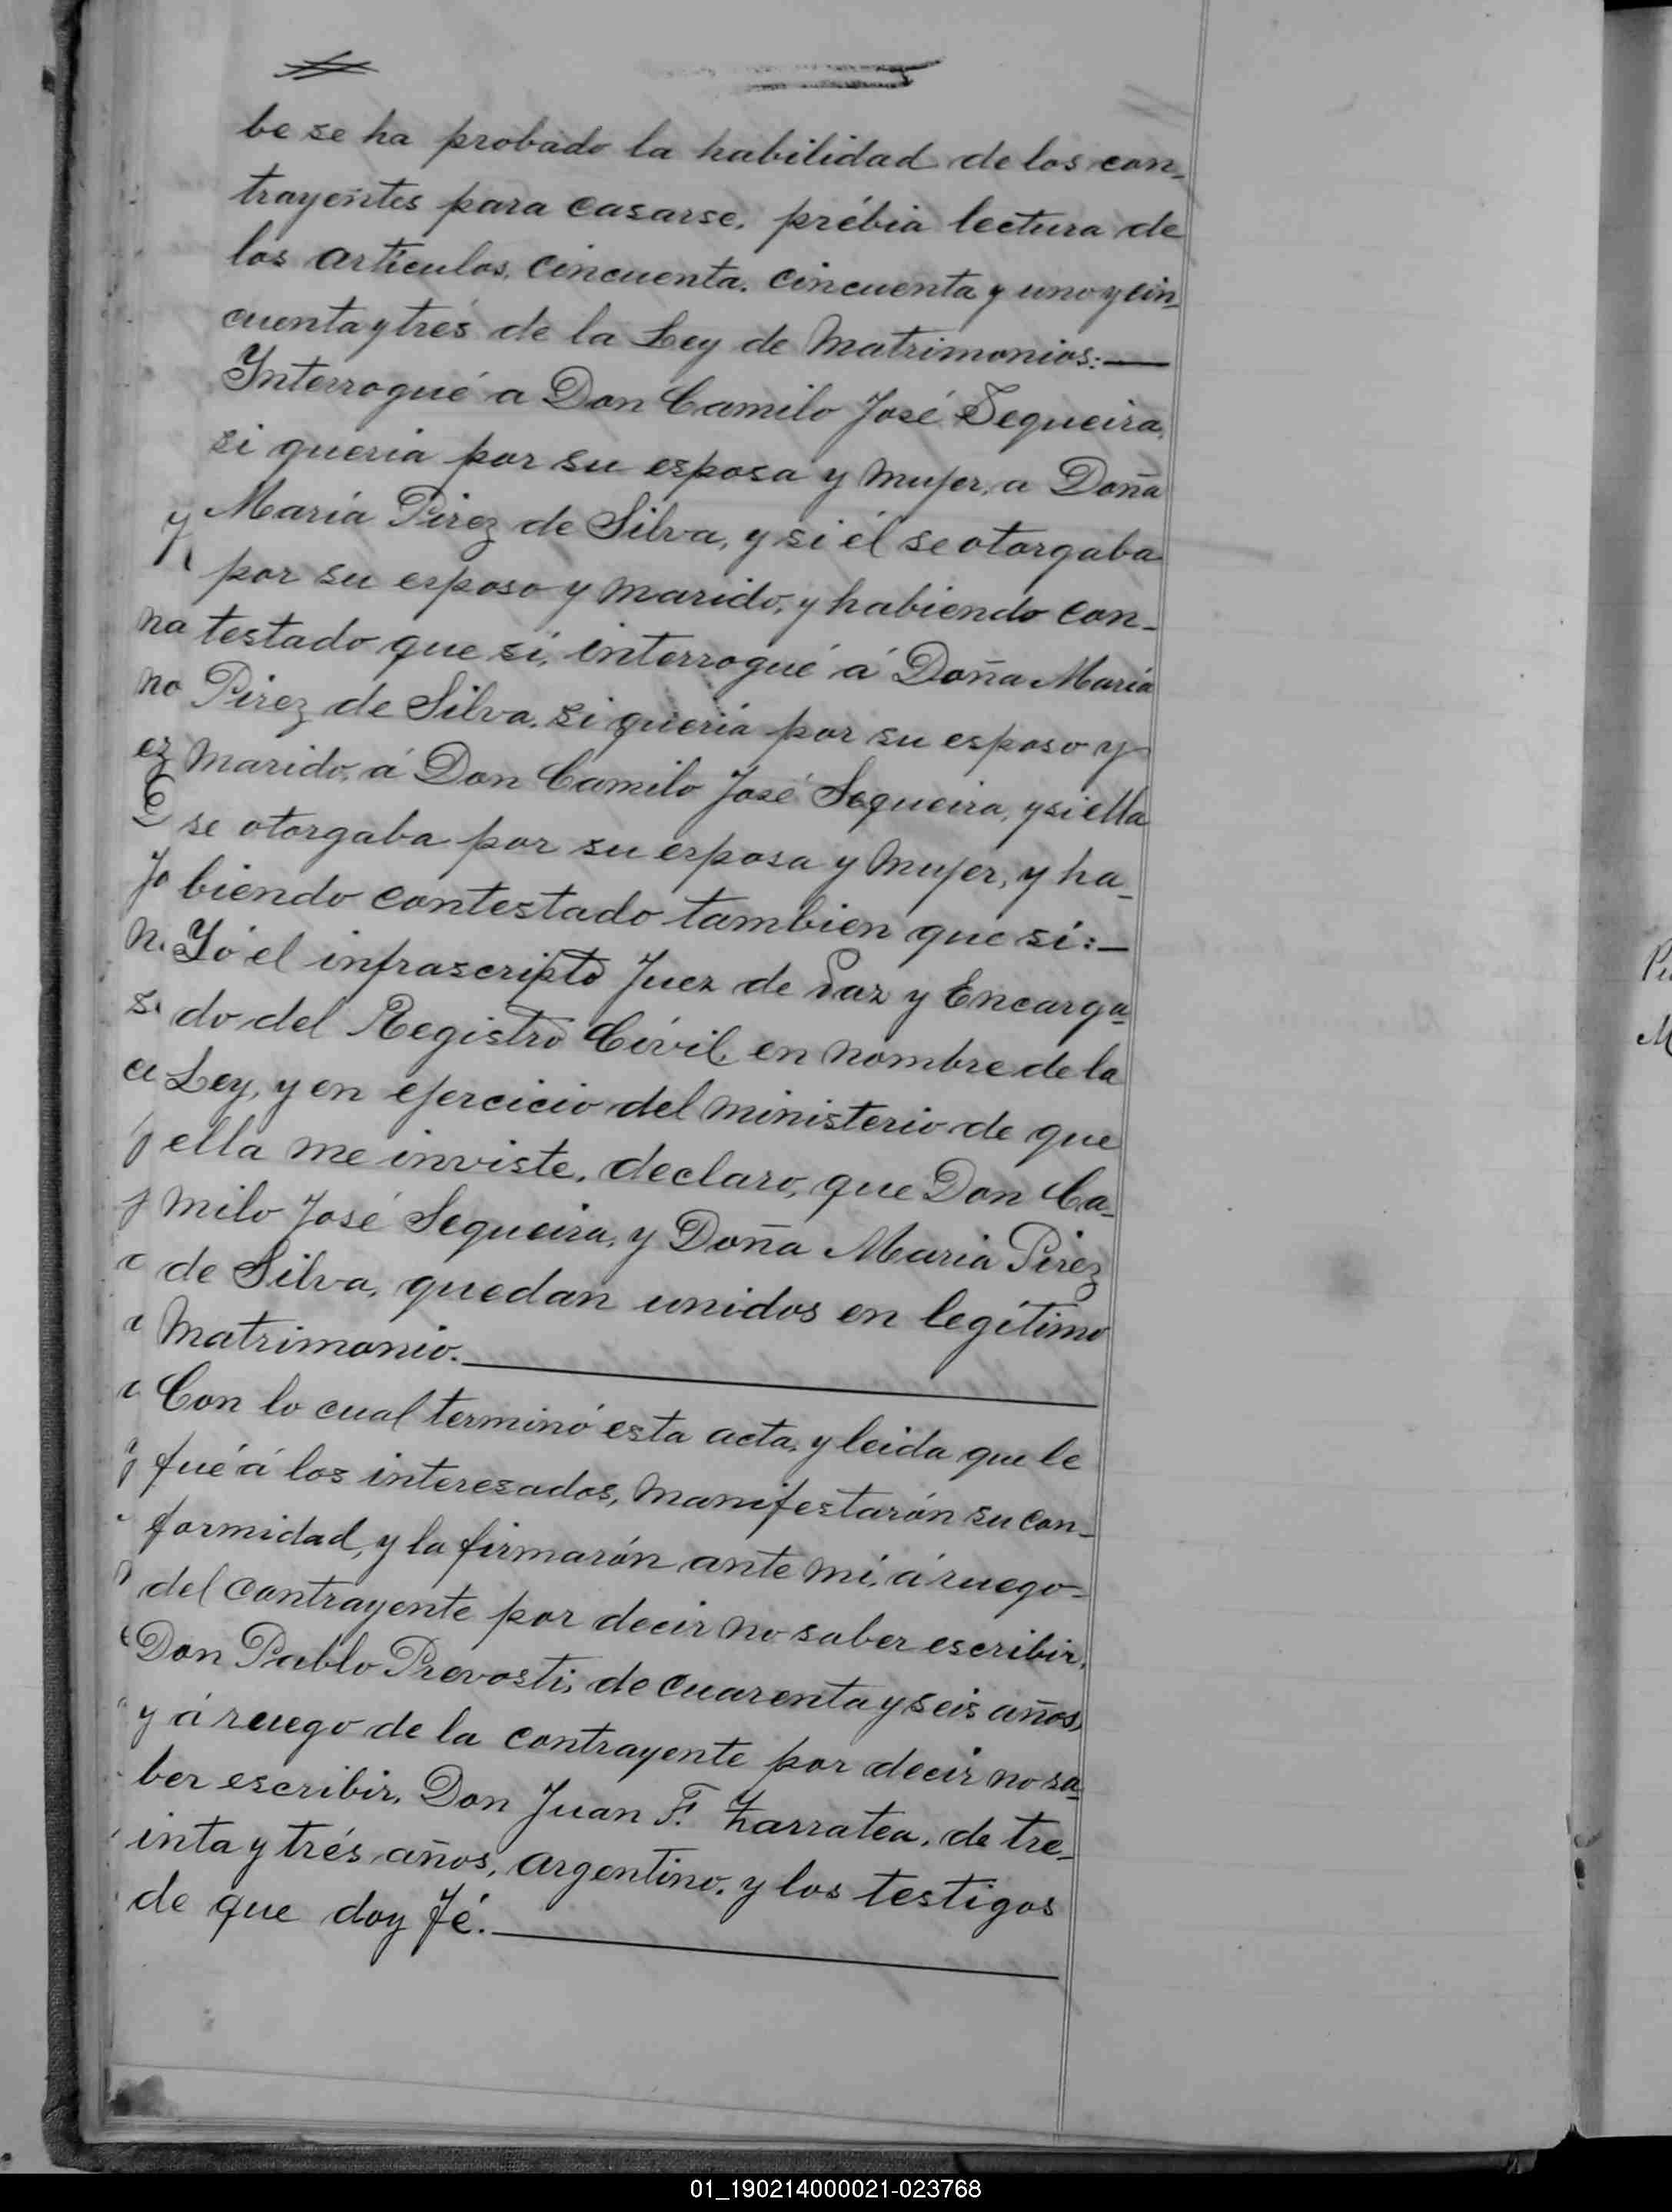 be se ha probado la habilidad de los con-
trayentes para casarse, prébia lectura de
los artículos, cincuenta, cincuenta y uno y cin-
cuenta y trés de la Ley de Matrimonios:—
Interrogué a Don Camilo José Sequeira,
si queria por su esposa y mujer, a Doña
María Pirez de Silva, y si él se otorgaba
por su esposo y marido, y habiendo con-
testado que si, interrogué á Doña María
Pirez de Silva, si quería por su esposo y
marido, á Don Camilo José Sequeira, y si ella
se otorgaba por su esposa y mujer, y ha-
biendo contestado tambien que sí:—
Yó el infrascripto Juez de Paz y Encarga-
do del Registro Cívil, en nombre de la
Ley, y en ejercicio del ministerio de que
ella me inviste, declaro, que Don Ca-
milo José Sequeira, y Doña Maria Pirez
de Silva, quedan unidos en legítimo
Matrimonio.—
Con lo cual terminó esta acta, y leida que le
fué á los interesados, manifestarón su con-
formidad, y la firmarón ante mí, á ruego-
del contrayente por decir no saber escribir,
Don Pablo Prevosti, de cuarenta y seis años,
y á ruego de la contrayente por decir no sa-
ber escribir, Don Juan F. Zarratea, de tre-
inta y trés años, argentino, y los testigos
de que doy fé.—
01_190214000021-023768